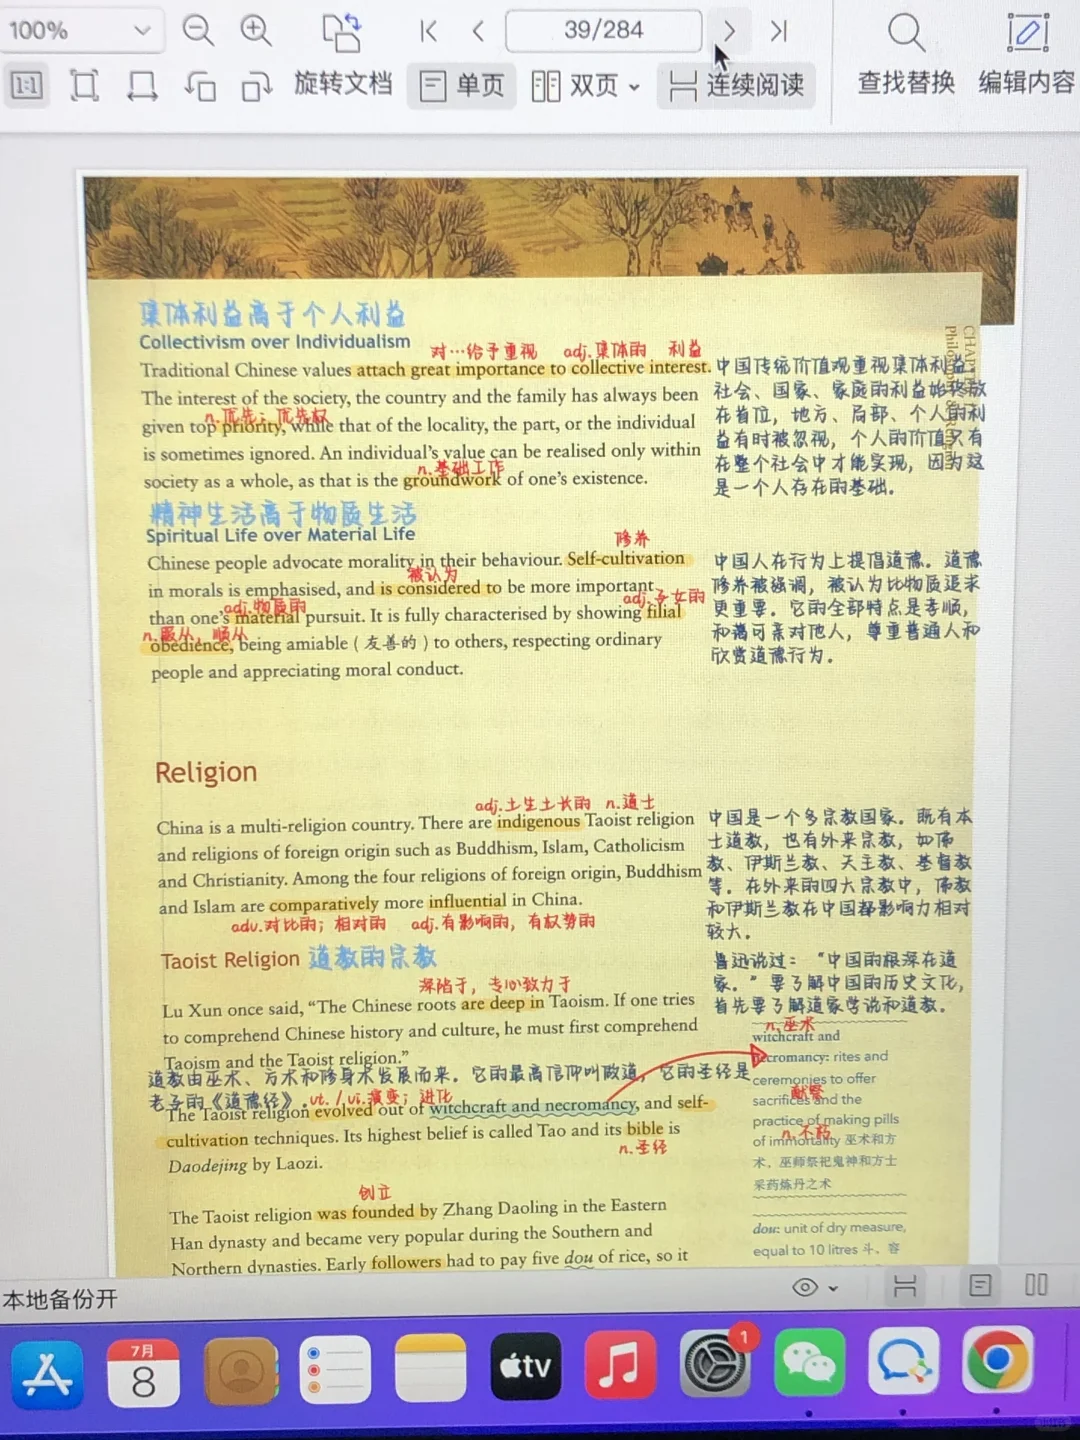 100%
39/284
旋转文档
单页
双页
连续阅读
查找替换
编辑内容
集体利益高于个人利益
Collectivism over Individualism
对…给予重视 adj.集体的 利益
Traditional Chinese values attach great importance to collective interest.
The interest of the society, the country and the family has always been
n.优先；优先权
given top priority, while that of the locality, the part, or the individual
is sometimes ignored. An individual's value can be realised only within
n.基础工作
society as a whole, as that is the groundwork of one's existence.
中国传统价值观重视集体利益。
社会、国家、家庭的利益始终放
在首位，地方、局部、个人的利
益有时被忽视，个人的价值只有
在整个社会中才能实现，因为这
是一个人存在的基础。
精神生活高于物质生活
Spiritual Life over Material Life
修养
Chinese people advocate morality in their behaviour. Self-cultivation
被认为
in morals is emphasised, and is considered to be more important
adj.物质的 adj.子女的
than one's material pursuit. It is fully characterised by showing filial
n.服从，顺从
obedience, being amiable ( 友善的 ) to others, respecting ordinary
people and appreciating moral conduct.
中国人在行为上提倡道德。道德
修养被强调，被认为比物质追求
更重要。它的全部特点是孝顺，
和蔼可亲对他人，尊重普通人和
欣赏道德行为。
Religion
adj.土生土长的 n.道士
China is a multi-religion country. There are indigenous Taoist religion
and religions of foreign origin such as Buddhism, Islam, Catholicism
and Christianity. Among the four religions of foreign origin, Buddhism
and Islam are comparatively more influential in China.
adv.对比的；相对的 adj.有影响的，有权势的
中国是一个多宗教国家。既有本
土道教，也有外来宗教，如佛
教、伊斯兰教、天主教、基督教
等。在外来的四大宗教中，佛教
和伊斯兰教在中国都影响力相对
较大。
Taoist Religion 道教的宗教
深陷于，专心致力于
Lu Xun once said, “The Chinese roots are deep in Taoism. If one tries
to comprehend Chinese history and culture, he must first comprehend
Taoism and the Taoist religion.”
鲁迅说过：“中国的根深在道
家。”要了解中国的历史文化，
首先要了解道家学说和道教。
道教由巫术、方术和修身术发展而来。它的最高信仰叫做道，它的圣经是
老子的《道德经》.vt./vi.演变；进化
The Taoist religion evolved out of witchcraft and necromancy, and self-
cultivation techniques. Its highest belief is called Tao and its bible is
n.圣经
Daodejing by Laozi.
创立
The Taoist religion was founded by Zhang Daoling in the Eastern
Han dynasty and became very popular during the Southern and
Northern dynasties. Early followers had to pay five dou of rice, so it
n.巫术
witchcraft and
necromancy: rites and
ceremonies to offer
献祭
sacrifices and the
practice of making pills
n.不朽
of immortality 巫术和方
术，巫师祭祀鬼神和方士
采药炼丹之术
dou: unit of dry measure,
equal to 10 litres 斗、容
本地备份开
7月
8
tv
1